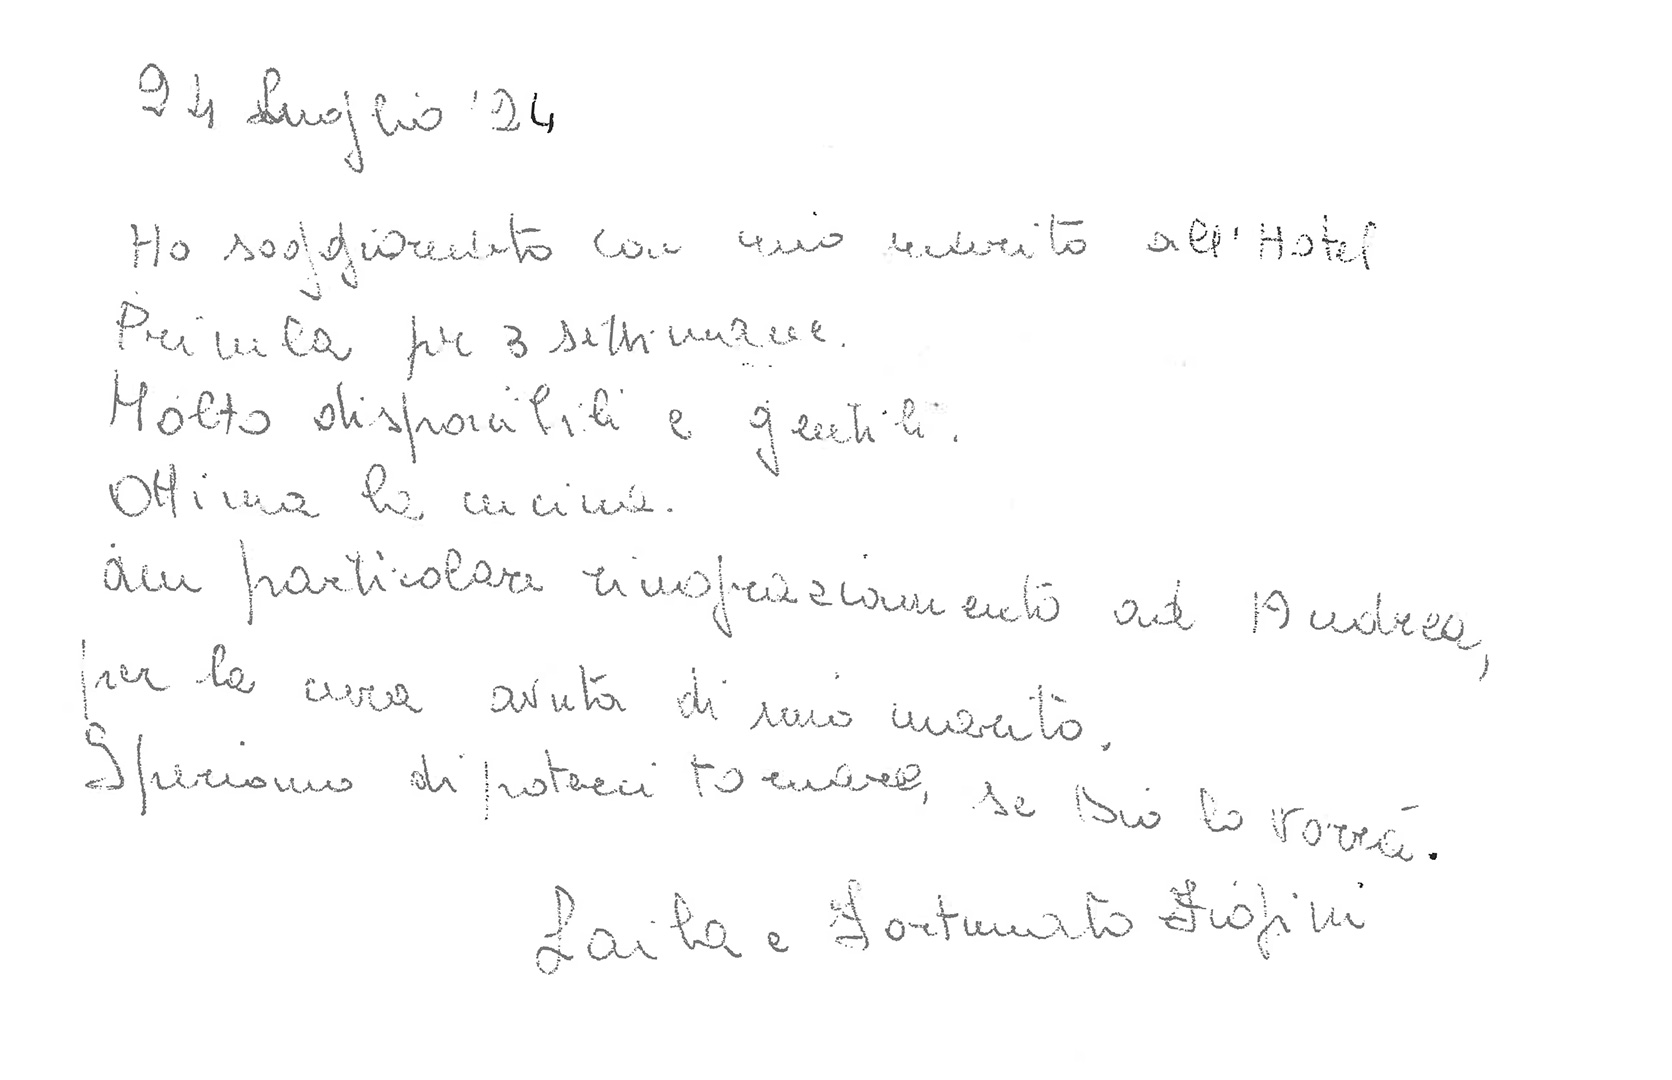 24 Luglio '24
Ho soggiornato con mio marito all'Hotel
Primula per 3 settimane.
Molto disponibili e gentili.
Ottima la cucina.
Un particolare ringraziamento ad Andrea,
per la cura avuta di mio marito.
Speriamo di poterci tornare, se Dio lo vorrà.
Laila e Fortunato